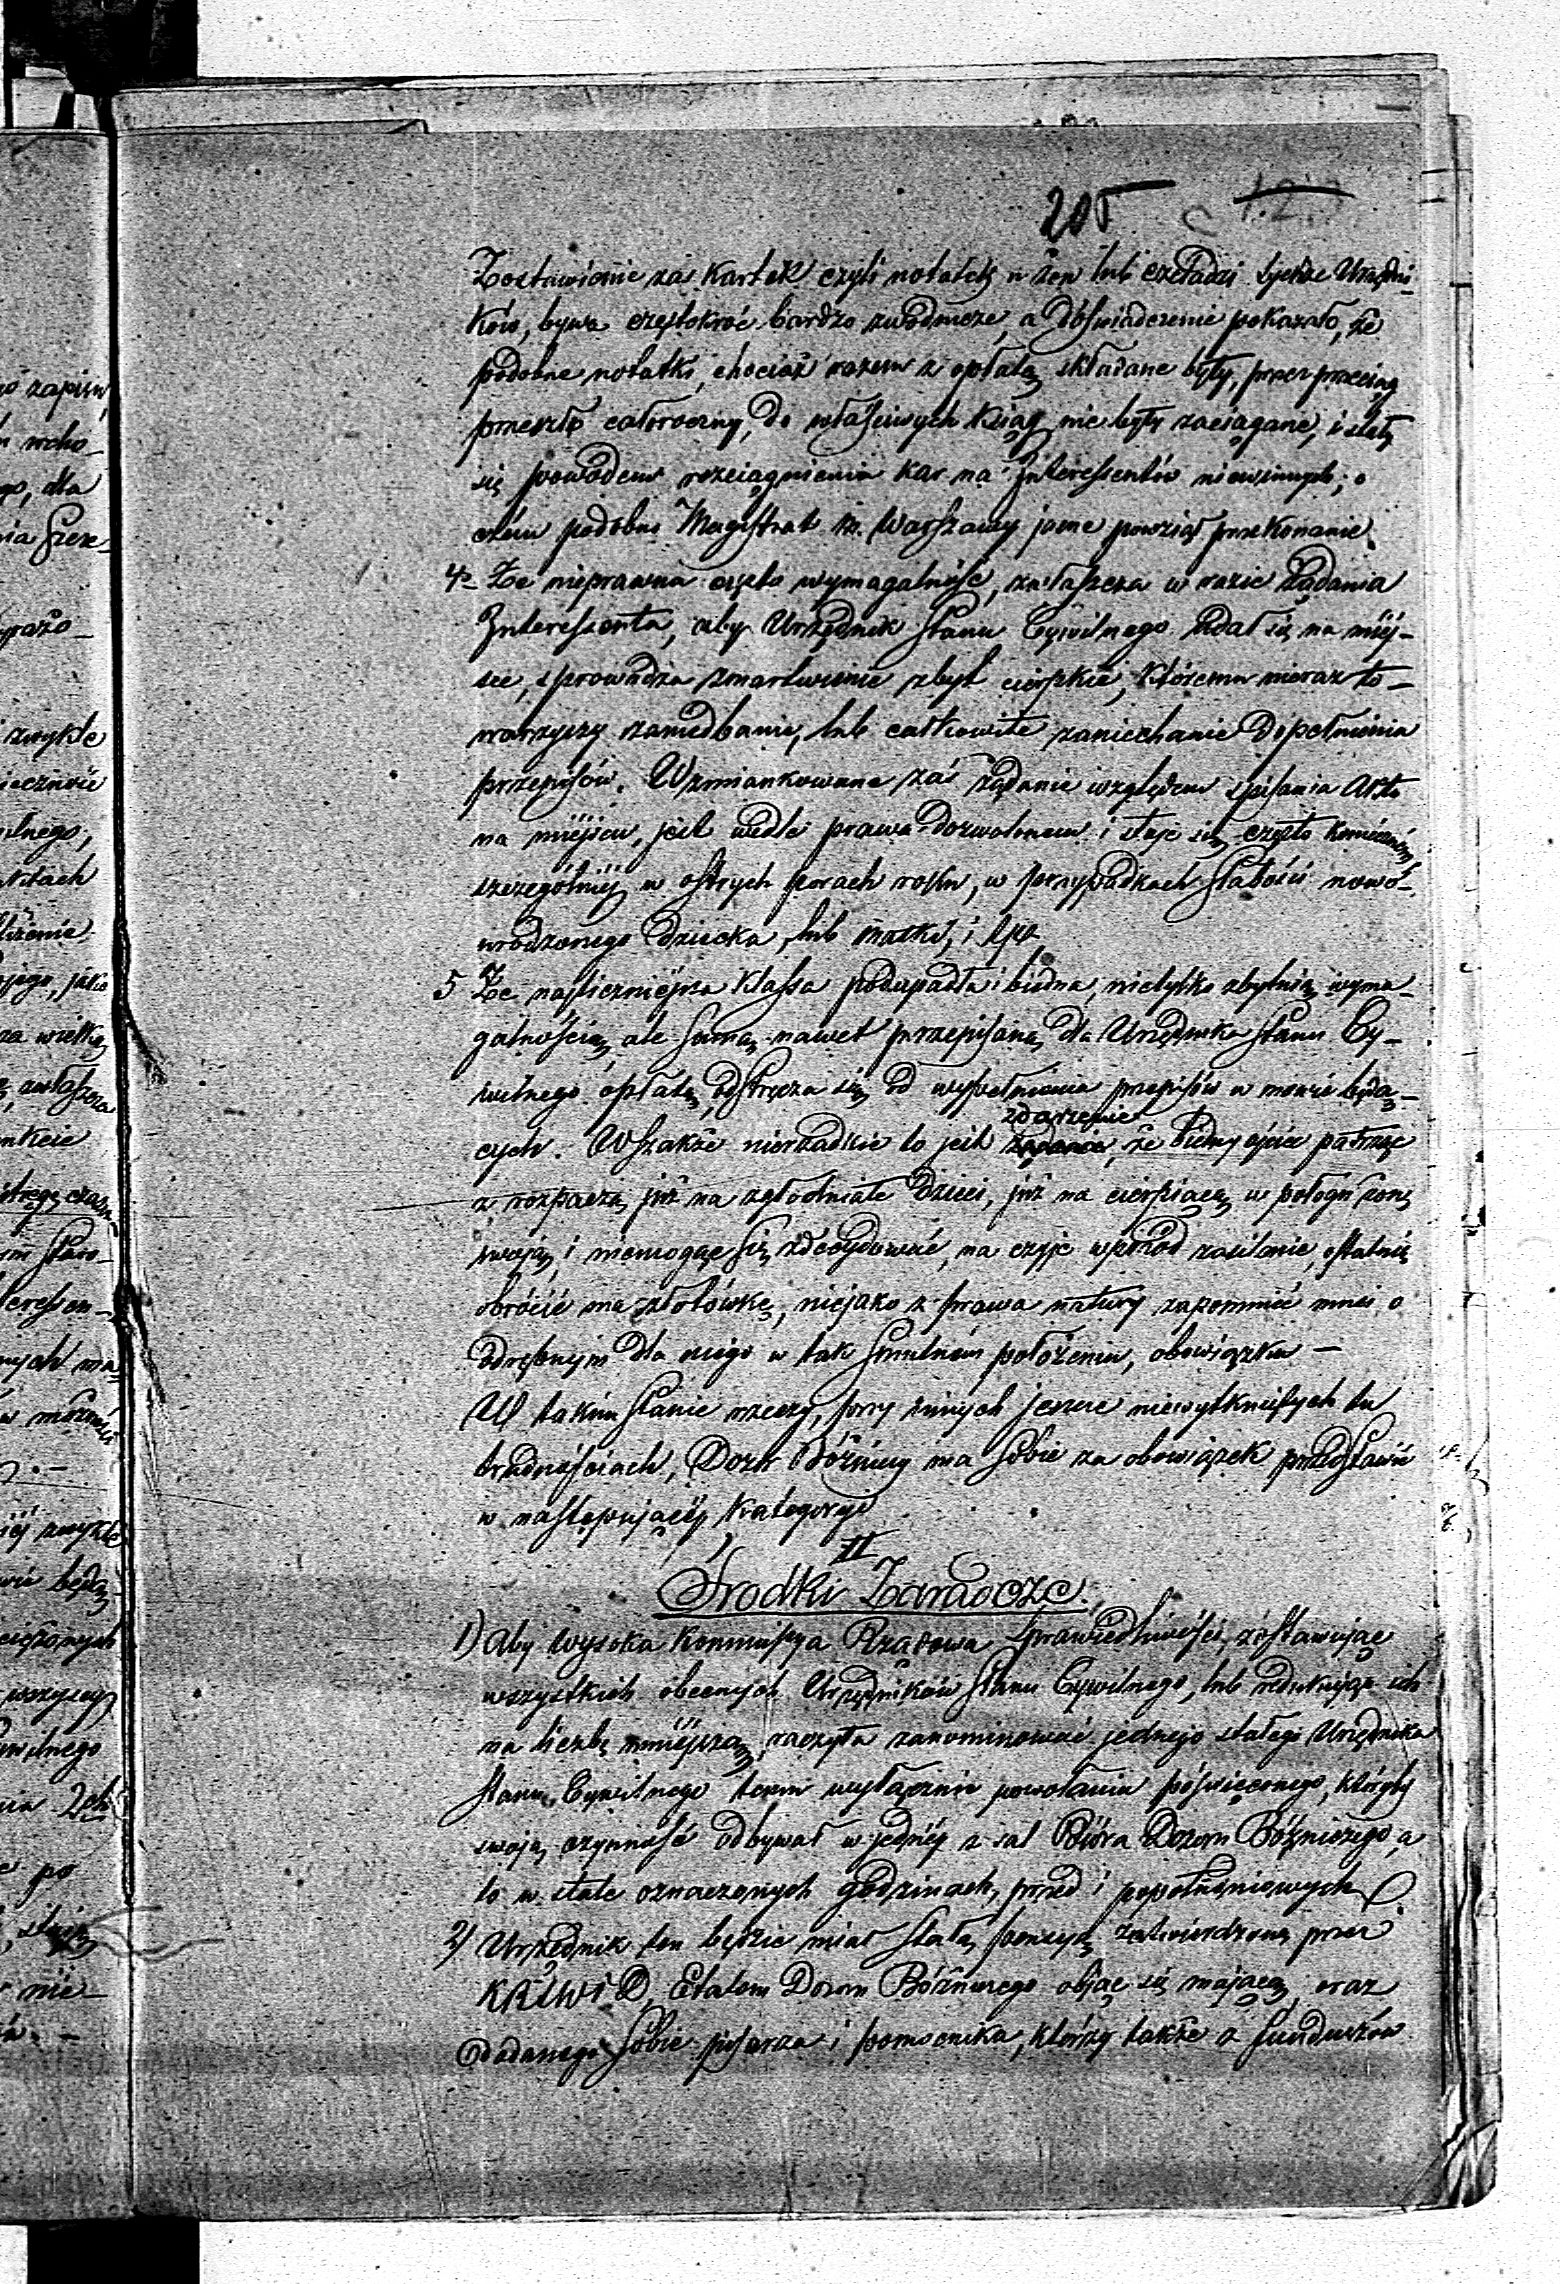 205
Zostawienie zaś kartek czyli notatek u żon lub czeladzi tychże Urzędni-
ków, bywa częstokroć bardzo zwodnicze, a doświadczenie pokazało, że
podobne notatki, chociaż razem z opłatą składane były, przez przeciąg
przeszło całoroczny, do właściwych Ksiąg nie były zaciągane, i stały
się powodem rozciągnienia kar na Interessentów niewinnych; o
czém podobno Magistrat M. Warszawy jasne powziął przekonanie.
4o Że nieprawna często wymagalność, zwłaszcza w razie żądania
Interessenta, aby Urzędnik Stanu Cywilnego udał się na miéj-
sce, sprowadza zmartwienie zbyt cierpkie, któremu nieraz to-
warzyszy zaniedbanie, lub całkowite zaniechanie dopełnienia
przepisów. Wzmiankowane zaś żądanie względem spisania Aktu
na miéjscu, jest wedle prawa dozwolonem i staje się często konieczném,
szczególniéj w ostrych porach roku, w przypadkach słabości nowo-
urodzonego dziecka, lub matki, i t.p.
5 Że najliczniéjsza Klassa podupadła i biédna, nietylko zbytnią wyma-
galnością, ale samą nawet przepisaną dla Urzędnika Stanu Cy-
wilnego opłatą, odstręcza się od wypełnienia przepisów w mowie będą-
cych. Wszakże nierzadkie to jest zdarzenie, że biedny ojciec patrząc
z rozpaczą już na zgłodniałe dzieci, już na cierpiącą w połogu żonę
swoją, i niemogąc się zdecydować, na czyje wprzód zasilenie, ostatnią
obrócić ma złotówkę, niejako z prawa natury zapomnieć musi o
odrębnym dla niego w tak smutném położeniu, obowiązku —
W takim stanie rzeczy, przy innych jeszcze niewytkniętych tu
trudnościach, Dozór Bóżniczy ma sobie za obowiązek przedstawić
w następującéj kategoryi
II
Środki Zaradcze.
1) Aby Wysoka Kommissya Rządowa Sprawiedliwości, zostawując
wszystkich obecnych Urzędników Stanu Cywilnego, lub redukując ich
na liczbę mniéjszą, raczyła zanominować jednego stałego Urzędnika
Stanu Cywilnego temu wyłącznie powołaniu poświęconego, któryby
swoją czynność odbywał w jednéj z sal Bióra Dozoru Bóżniczego, a
to w stale oznaczonych godzinach, przed i popołudniowych.
2) Urzędnik ten będzie miał stałą pensyą zatwierdzoną przez
KRSWiD, Etatem Dozoru Bóżniczego objąć się mającą, oraz
dodanego sobie pisarza i pomocnika, którzy także z funduszów